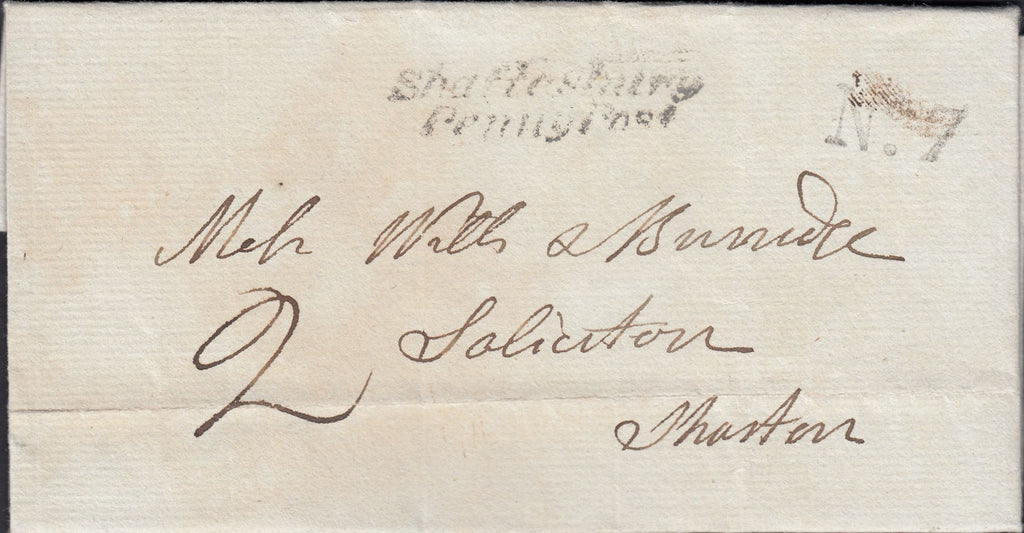 Shaftesbury
Penny Post
N. 7
Messrs Wills & Burridge
2 Solicitors
Shaston